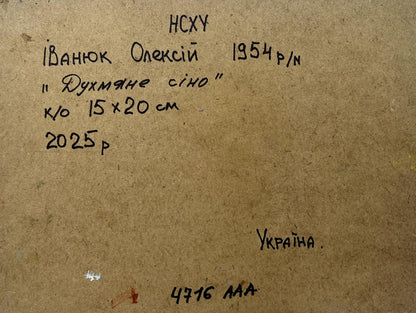 НСХУ
Іванюк Олексій 1954 р/н
„Духмяне сіно"
к/о 15х20 см
2025 р
Україна.
4716 ААА